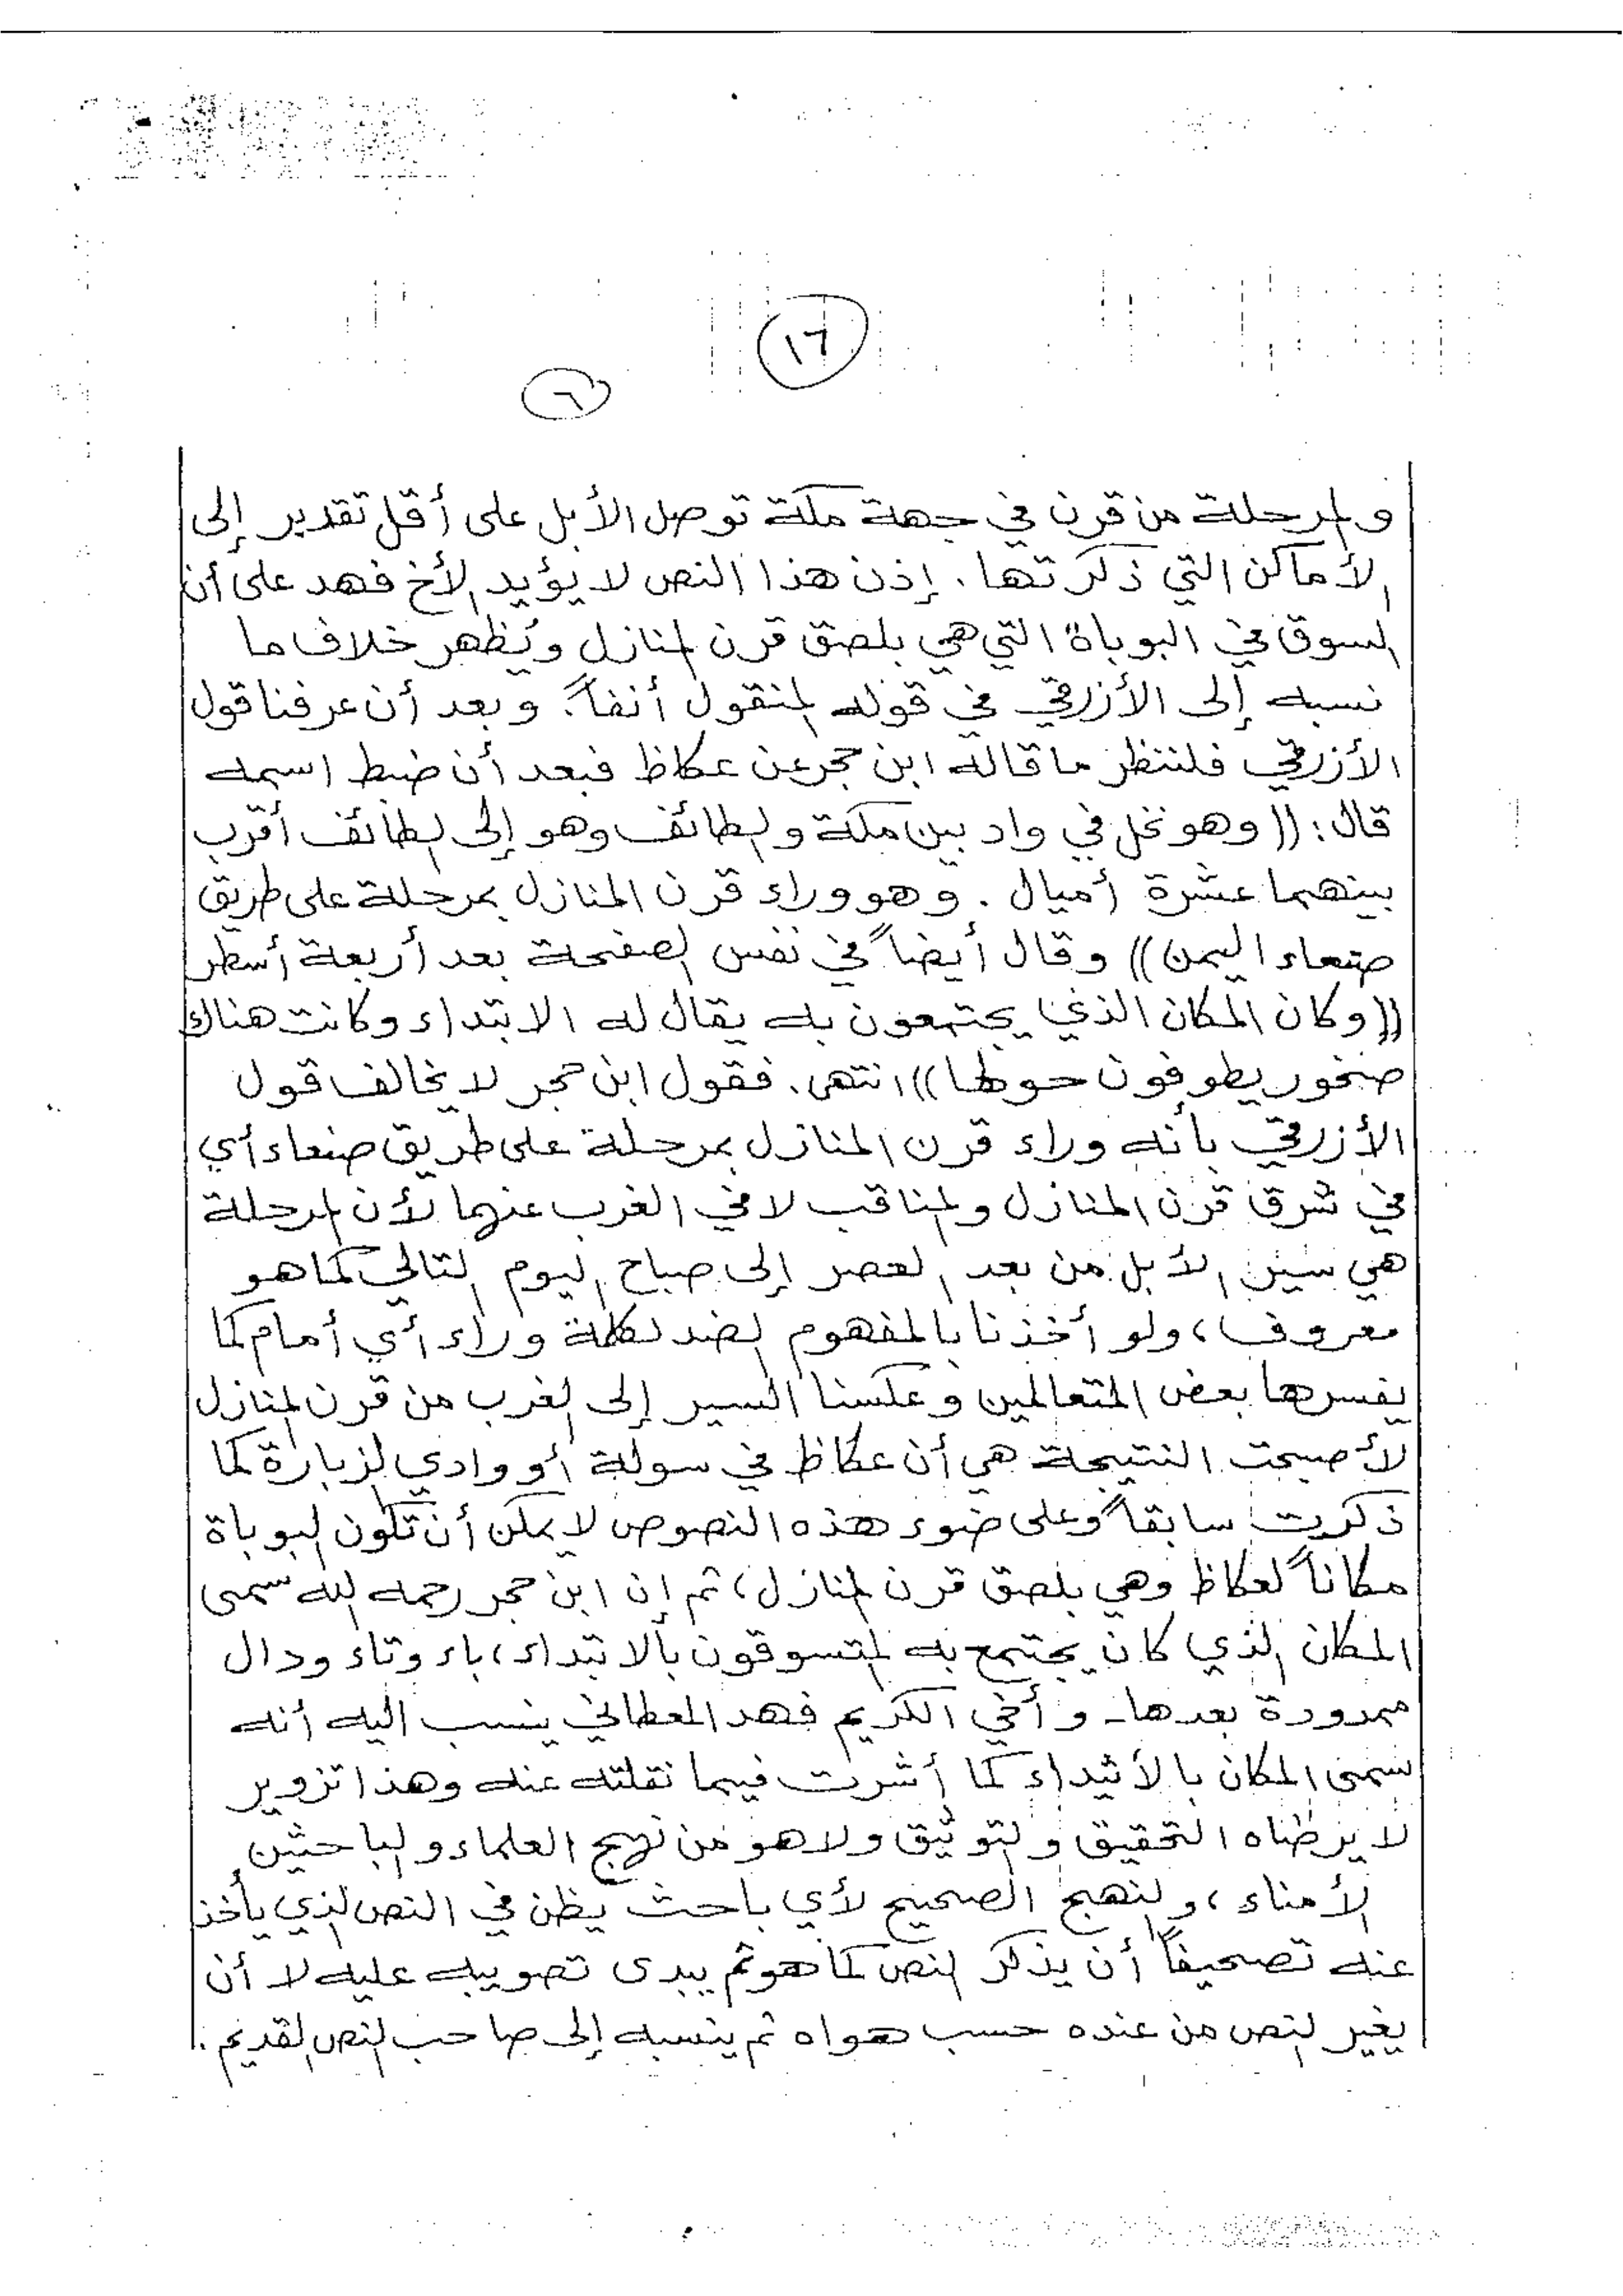 ١٦
٦
والمرحلة من قرن في جهة مكة توصل الأبل على أقل تقدير إلى
الأماكن التي ذكرتها. إذن هذا النص لا يؤيد الأخ فهد على أن
السوق في البوباة التي هي بلصق قرن المنازل ويُظهر خلاف ما
نسبه إلى الأزرقي في قوله المنقول أنفاً. وبعد أن عرفنا قول
الأزرقي فلننظر ما قاله ابن حجر عن عكاظ فبعد أن ضبط اسمه
قال: ((وهو نخل في واد بين مكة والطائف وهو إلى الطائف أقرب
بينهما عشرة أميال. وهو وراء قرن المنازل بمرحلة على طريق
صنعاء اليمن)) وقال أيضاً في نفس الصفحة بعد أربعة أسطر
((وكان المكان الذي يجتمعون به يقال له الابتداء وكانت هناك
صخور يطوفون حولها)) انتهى. فقول ابن حجر لا يخالف قول
الأزرقي بأنه وراء قرن المنازل بمرحلة على طريق صنعاء أي
في شرق قرن المنازل والمناقب لا في الغرب عنهما لأن المرحلة
هي سير الأبل من بعد العصر إلى صباح اليوم التالي كما هو
معروف، ولو أخذنا بالمفهوم الضد لكلمة وراء أي أمام كما
يفسرها بعض المتعالمين وعكسنا السير إلى الغرب من قرن المنازل
لأصبحت النتيجة هي أن عكاظ في سولة أو وادي الزبارة كما
ذكرت سابقاً وعلى ضوء هذه النصوص لا يمكن أن تكون البوباة
مكاناً لعكاظ وهي بلصق قرن المنازل، ثم إن ابن حجر رحمه الله سمى
المكان الذي كان يجتمع به المتسوقون بالابتداء، باء وتاء ودال
ممدودة بعدها ـ وأخي الكريم فهد المعطاني ينسب اليه أنه
سمى المكان بالأثيداء كما أشرت فيما نقلته عنه وهذا تزوير
لا يرضاه التحقيق والتوثيق ولا هو من نهج العلماء والباحثين
الأمناء، والنهج الصحيح لأي باحث يظن في النص الذي يأخذ
عنه تصحيفاً أن يذكر النص كما هو ثم يبدى تصويبه عليه لا أن
يغير النص من عنده حسب هواه ثم ينسبه إلى صاحب النص القديم.